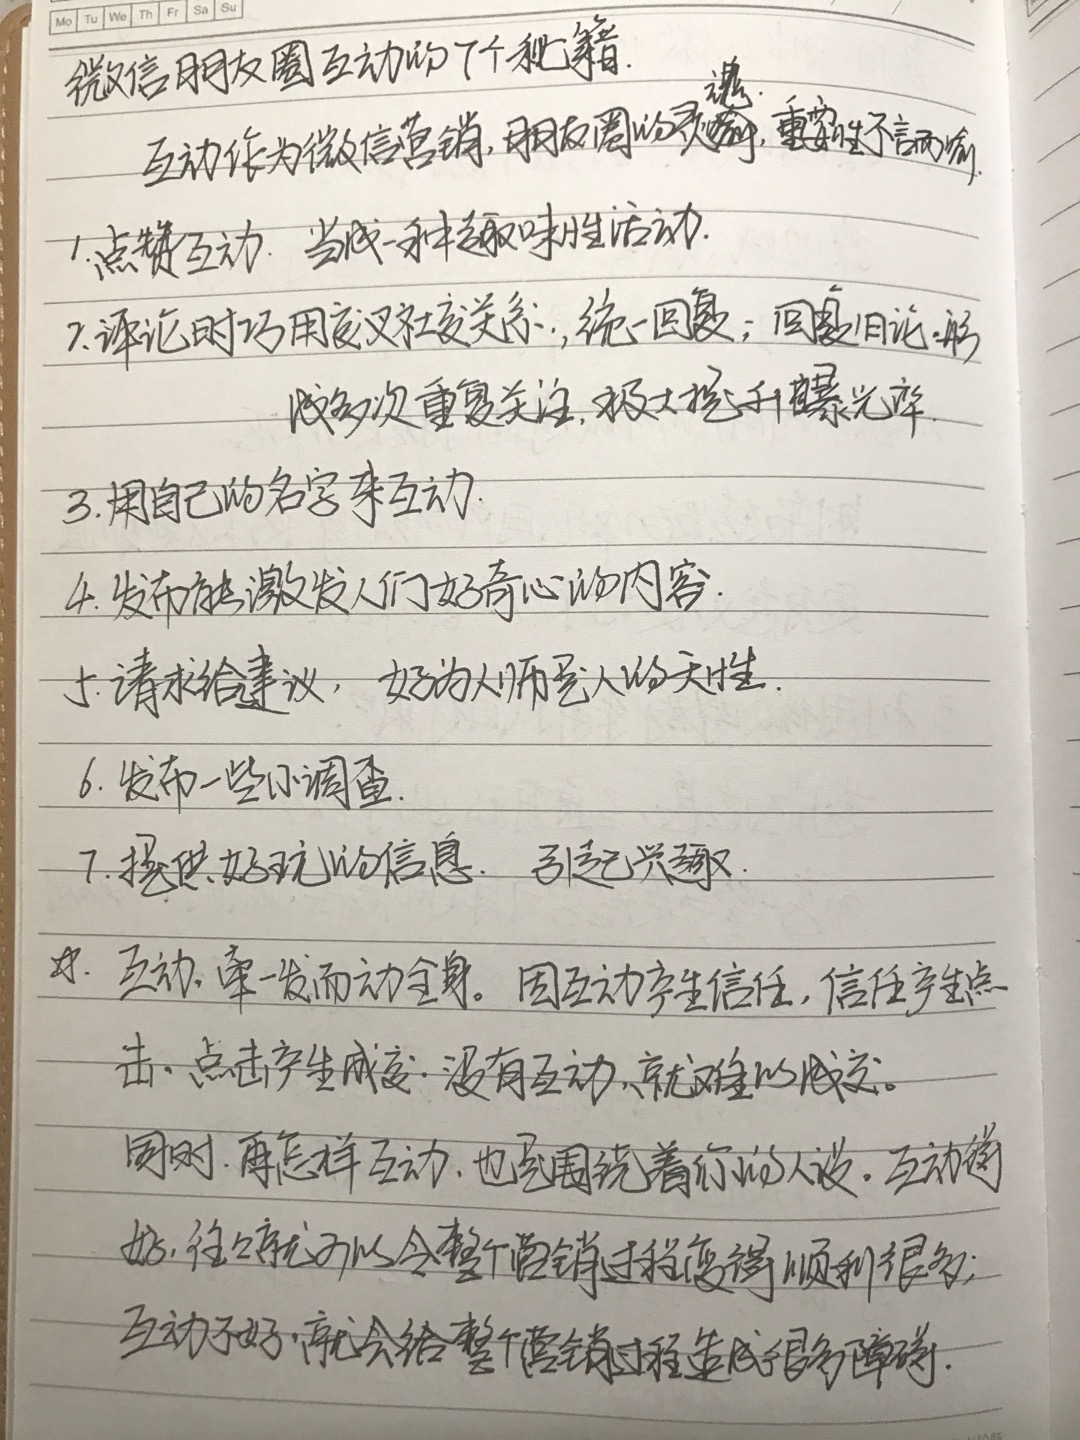 Mo Tu We Th Fr Sa Su
微信朋友圈互动的7个秘籍.
互动作为微信营销,朋友圈的灵魂,重要性不言而喻.
1.点赞互动. 当成一种趣味性活动.
2.评论时巧用交叉社交关系.,统一回复;回复旧论.形
成多次重复关注,极大提升曝光率.
3.用自己的名字来互动.
4.发布能激发人们好奇心的内容.
5.请求给建议, 好为人师是人的天性.
6.发布一些小调查.
7.提供好玩的信息. 引起兴趣.
☆. 互动,牵一发而动全身。因互动产生信任,信任产生点
击.点击产生成交.没有互动、就难以成交。
同时.再怎样互动、也是围绕着你的人设。互动得
好,往々就可以令整个营销过程变得顺利很多;
互动不好.就会给整个营销过程造成很多障碍.